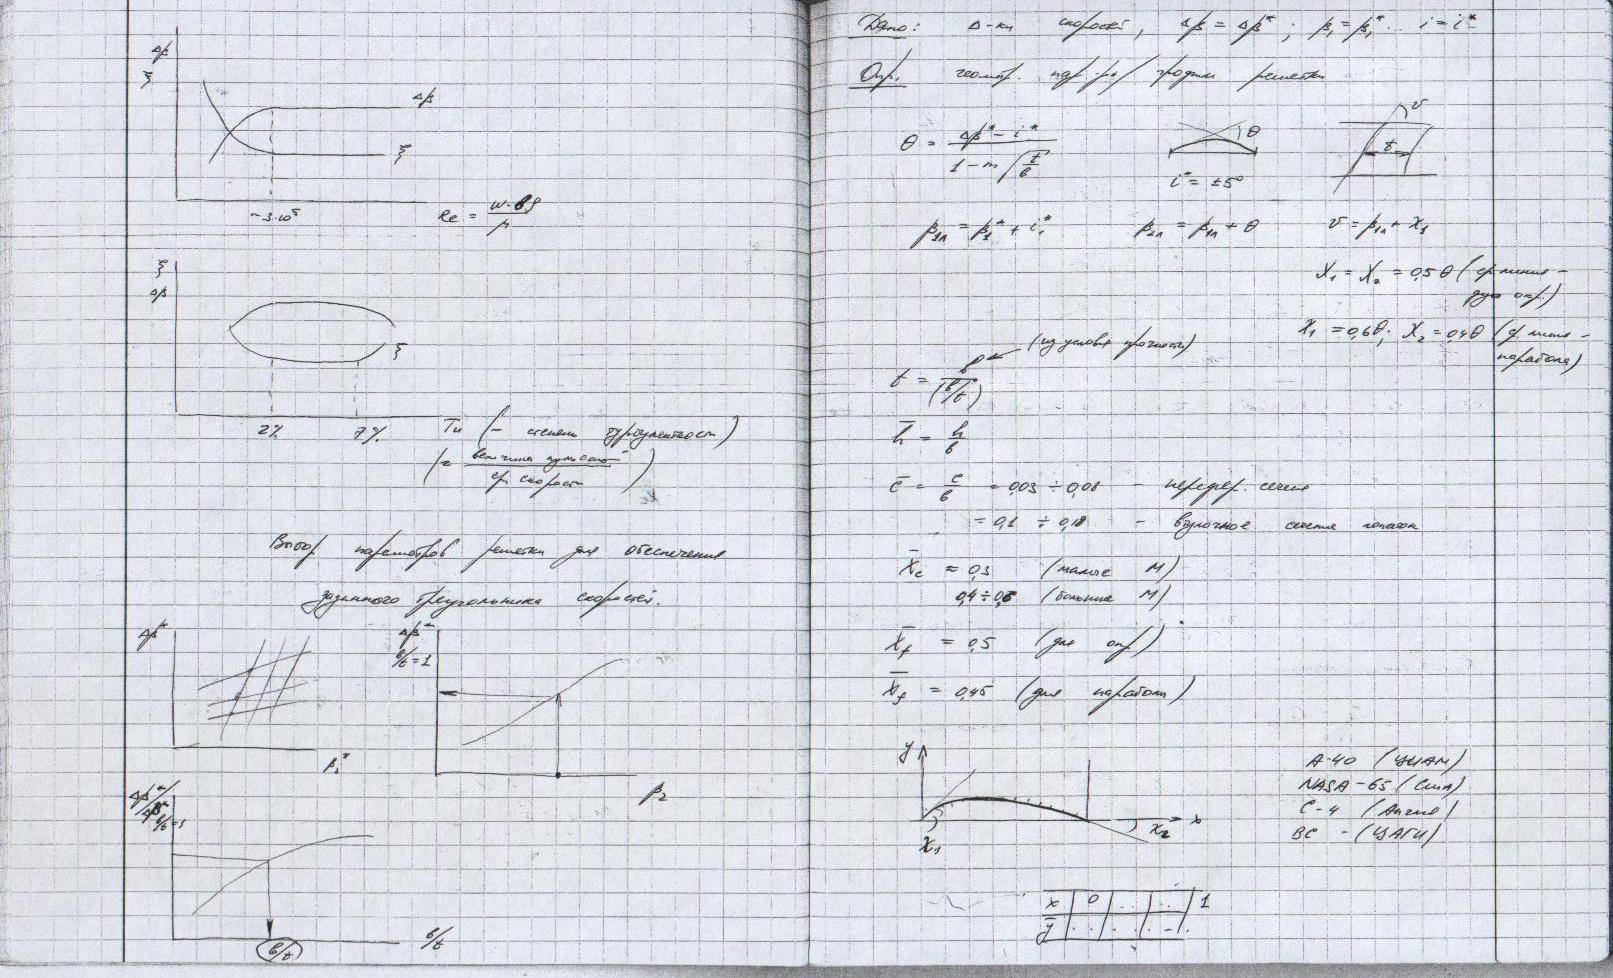 Δβ
ξ
Δβ
ξ
~3·10⁵
Re = w·bρ/μ
ξ
Δβ
ξ
2%
7%
Tu (– степень турбулентност)
(= величина пульсац / ср скорость)
Выбор параметров решетки для обеспечения
заданного треугольника скоростей.
Δβ*
β₁*
Δβ*
b/t=1
β₂
Δβ*/Δβ* b/t=1
b/t
b/t
Дано: Δ-ки скоростей, Δβ = Δβ*; β₁ = β₁* i = i*
Опр. геометр. пар-ры профиля решетки
θ = (Δβ* – i*) / (1 – m√(t/b))
θ
i* = ±5°
υ
t
β₁л = β₁* + i₁*
β₂л = β₁л + θ
υ = β₁л + χ₁
χ₁ = χ₂ = 0,5θ (ср линия –
дуга окр)
χ₁ = 0,6θ; χ₂ = 0,4θ (ср линия –
парабола)
t = b/(b/t)
(из условия прочности)
h̄ = h/b
c̄ = c/b = 0,03 ÷ 0,08 – перифер. сечение
= 0,1 ÷ 0,18 – втулочное сечение лопаток
X̄c ≈ 0,3 (малые M)
0,4 ÷ 0,5 (большие M)
X̄f = 0,5 (для окр)
X̄f = 0,45 (для параболы)
y
χ₁
χ₂
x
А-40 (ЦИАМ)
NASA-65 (США)
С-4 (Англия)
ВС – (ЦАГИ)
x̄ 0 .. .. 1
ȳ . . .. .. .